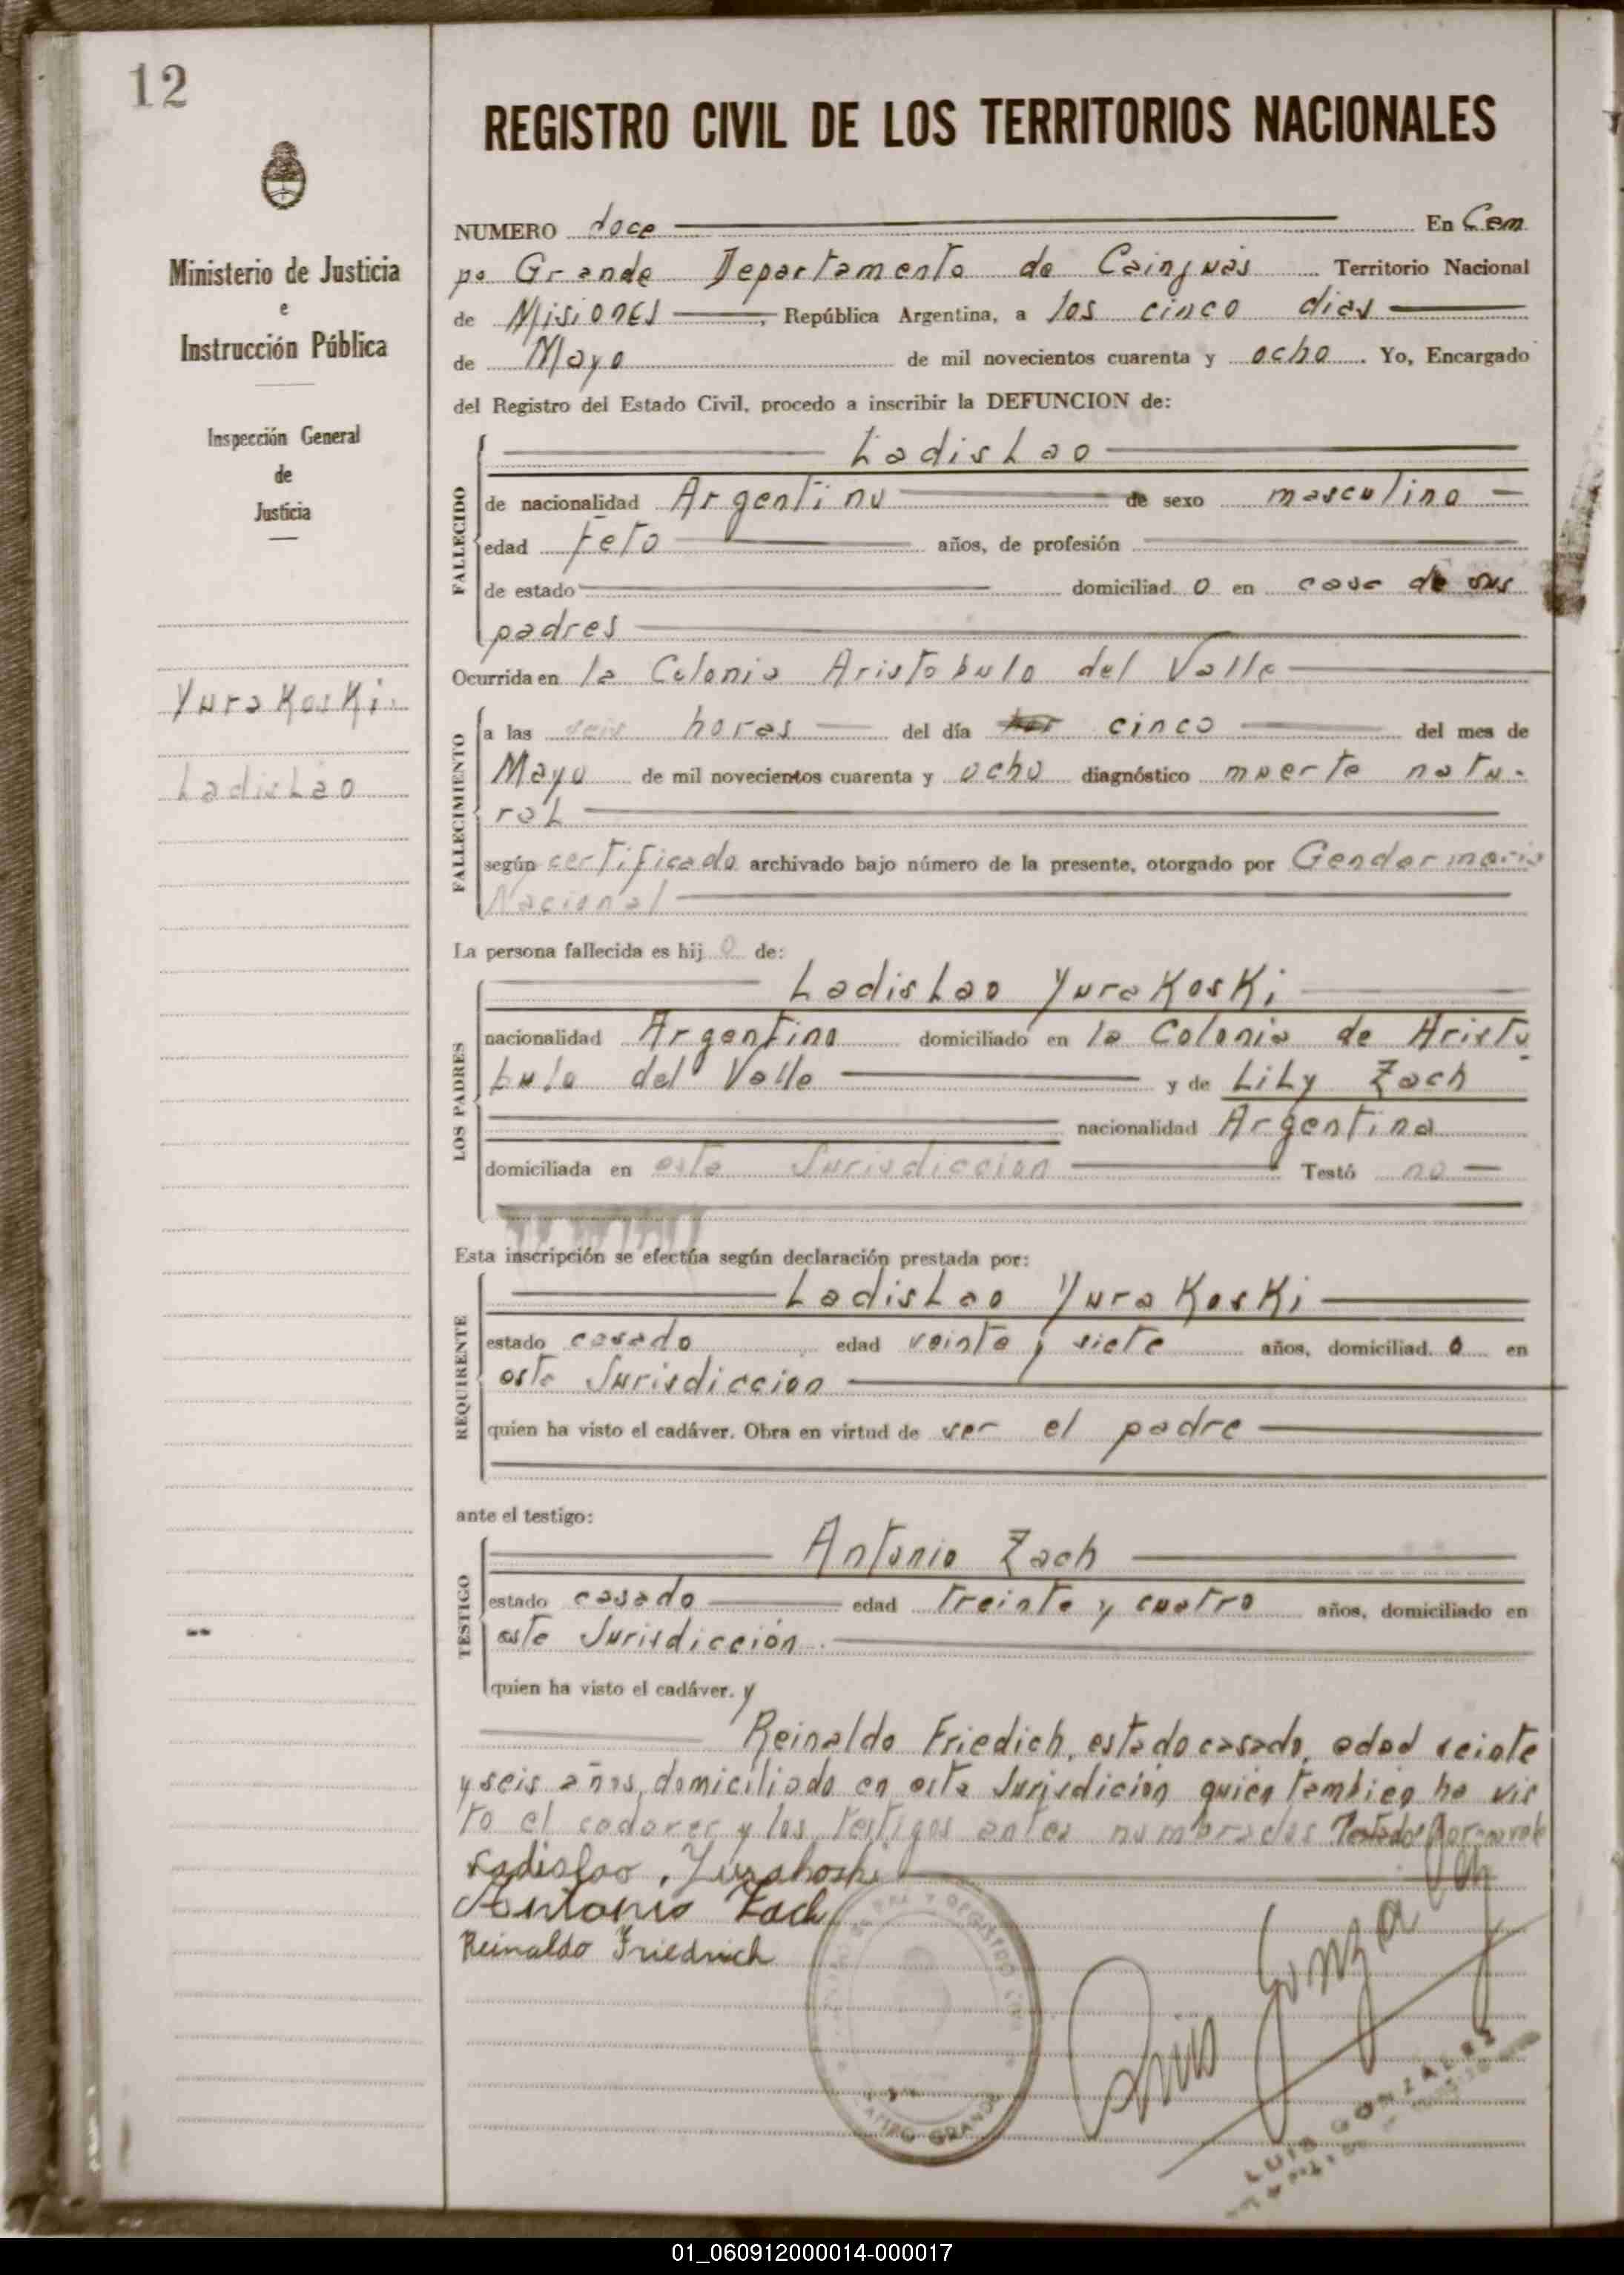 12
REGISTRO CIVIL DE LOS TERRITORIOS NACIONALES
Ministerio de Justicia
e
Instrucción Pública
Inspección General
de
Justicia
YuraKosKi.
LadisLao
NUMERO doce En Cam
po Grande Departamento de Cainguás Territorio Nacional
de Misiones, República Argentina, a los cinco dias
de Mayo de mil novecientos cuarenta y ocho. Yo, Encargado
del Registro del Estado Civil, procedo a inscribir la DEFUNCION de:
FALLECIDO
LadisLao
de nacionalidad Argentino de sexo masculino
edad Feto años, de profesión
de estado domiciliad o en casa de sus
padres
Ocurrida en la Colonia Aristobulo del Valle
FALLECIMIENTO
a las seis horas del día cinco del mes de
Mayo de mil novecientos cuarenta y ocho diagnóstico muerte natu-
raL
según certificado archivado bajo número de la presente, otorgado por Gendarmeria
Nacional
La persona fallecida es hij o de:
LOS PADRES
LadisLao YuraKosKi
nacionalidad Argentino domiciliado en la Colonia de Aristo
bulo del Valle y de LiLy Zach
nacionalidad Argentina
domiciliada en esta Jurisdiccion Testó no
Esta inscripción se efectúa según declaración prestada por:
REQUIRENTE
LadisLao YuraKosKi
estado casado edad veinte y siete años, domiciliad o en
esta Jurisdiccion
quien ha visto el cadáver. Obra en virtud de ser el padre
ante el testigo:
TESTIGO
Antonio Zach
estado casado edad treinta y cuatro años, domiciliado en
esta Jurisdicción.
quien ha visto el cadáver. y
Reinaldo Friedich, estado casado, edad veinte
y seis años, domiciliado en esta Jurisdición quien tambien ha vis
to el cadaver y los testigos antes nombrados
Ladislao Yurakoski
Antonio Zach
Reinaldo Friedrich
CAMPO GRANDE
LUIS GONZALEZ
01_060912000014-000017